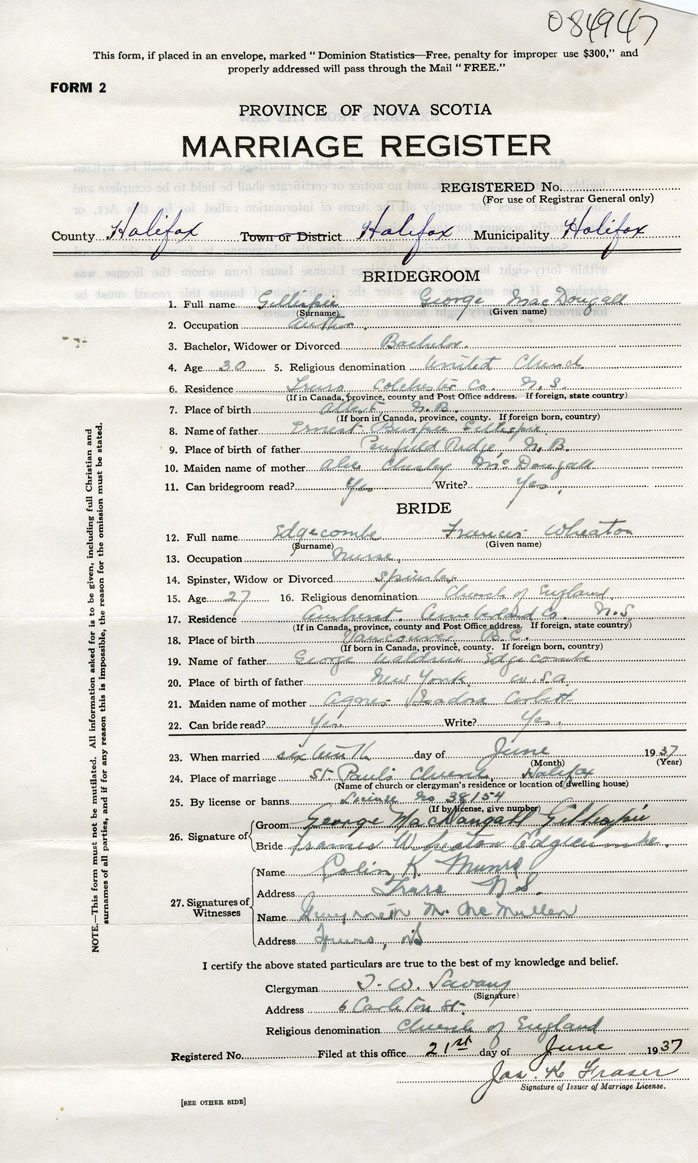 084947
This form, if placed in an envelope, marked “Dominion Statistics—Free, penalty for improper use $300,” and
properly addressed will pass through the Mail “FREE.”
FORM 2
PROVINCE OF NOVA SCOTIA
MARRIAGE REGISTER
REGISTERED No.
(For use of Registrar General only)
County Halifax Town or District Halifax Municipality Halifax
BRIDEGROOM
1. Full name Gillispie George MacDougall
(Surname) (Given name)
2. Occupation Author.
3. Bachelor, Widower or Divorced Bachelor.
4. Age 30 5. Religious denomination United Church
6. Residence Truro Colchester Co. N.S.
(If in Canada, province, county and Post Office address. If foreign, state country)
7. Place of birth Albert N.B.
(If born in Canada, province, county. If foreign born, country)
8. Name of father Ernest Burpee Gillespie
9. Place of birth of father Penfield Ridge, N.B.
10. Maiden name of mother Alice Chesley McDougall
11. Can bridegroom read? Yes Write? Yes.
BRIDE
12. Full name Edgecombe Frances Wheaton
(Surname) (Given name)
13. Occupation Nurse
14. Spinster, Widow or Divorced Spinster
15. Age 27 16. Religious denomination Church of England
17. Residence Amherst. Cumberland Co. N.S.
(If in Canada, province, county and Post Office address. If foreign, state country)
18. Place of birth Vancouver B.C.
(If born in Canada, province, county. If foreign born, country)
19. Name of father George Waldron Edgecombe
20. Place of birth of father New York U.S.A
21. Maiden name of mother Agnes Isadora Corbett
22. Can bride read? Yes. Write? Yes.
23. When married sixteenth day of June 1937
(Month) (Year)
24. Place of marriage St. Paul's Church, Halifax
(Name of church or clergyman's residence or location of dwelling house)
25. By license or banns License No 38154
(If by license, give number)
26. Signature of Groom George MacDougall Gillespie
Bride Frances Wheaton Edgecombe.
27. Signatures of Witnesses
Name Colin K. Munro
Address Truro N.S.
Name Gwynneth M. McMullen
Address Truro, NS
I certify the above stated particulars are true to the best of my knowledge and belief.
Clergyman T. W. Savary
(Signature)
Address 6 Carleton St.
Religious denomination Church of England
Registered No. Filed at this office 21st day of June 1937
Jas. K Fraser
Signature of Issuer of Marriage License.
[SEE OTHER SIDE]
NOTE.—This form must not be mutilated. All information asked for is to be given, including full Christian and
surnames of all parties, and if for any reason this is impossible, the reason for the omission must be stated.